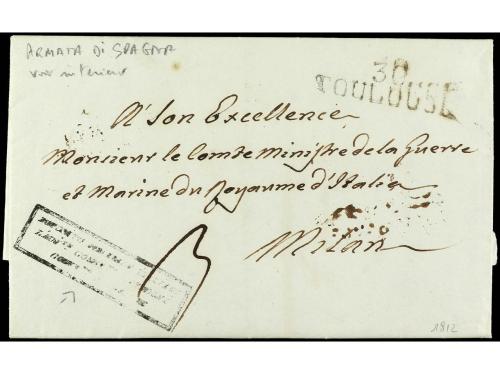 ARMATA DI SPAGNA
voir intérieur
30
TOULOUSE
A Son Excellence
Monsieur le Comte Ministre de la Guerre
et Marine du Royaume d'Italie
Milan
3
1812